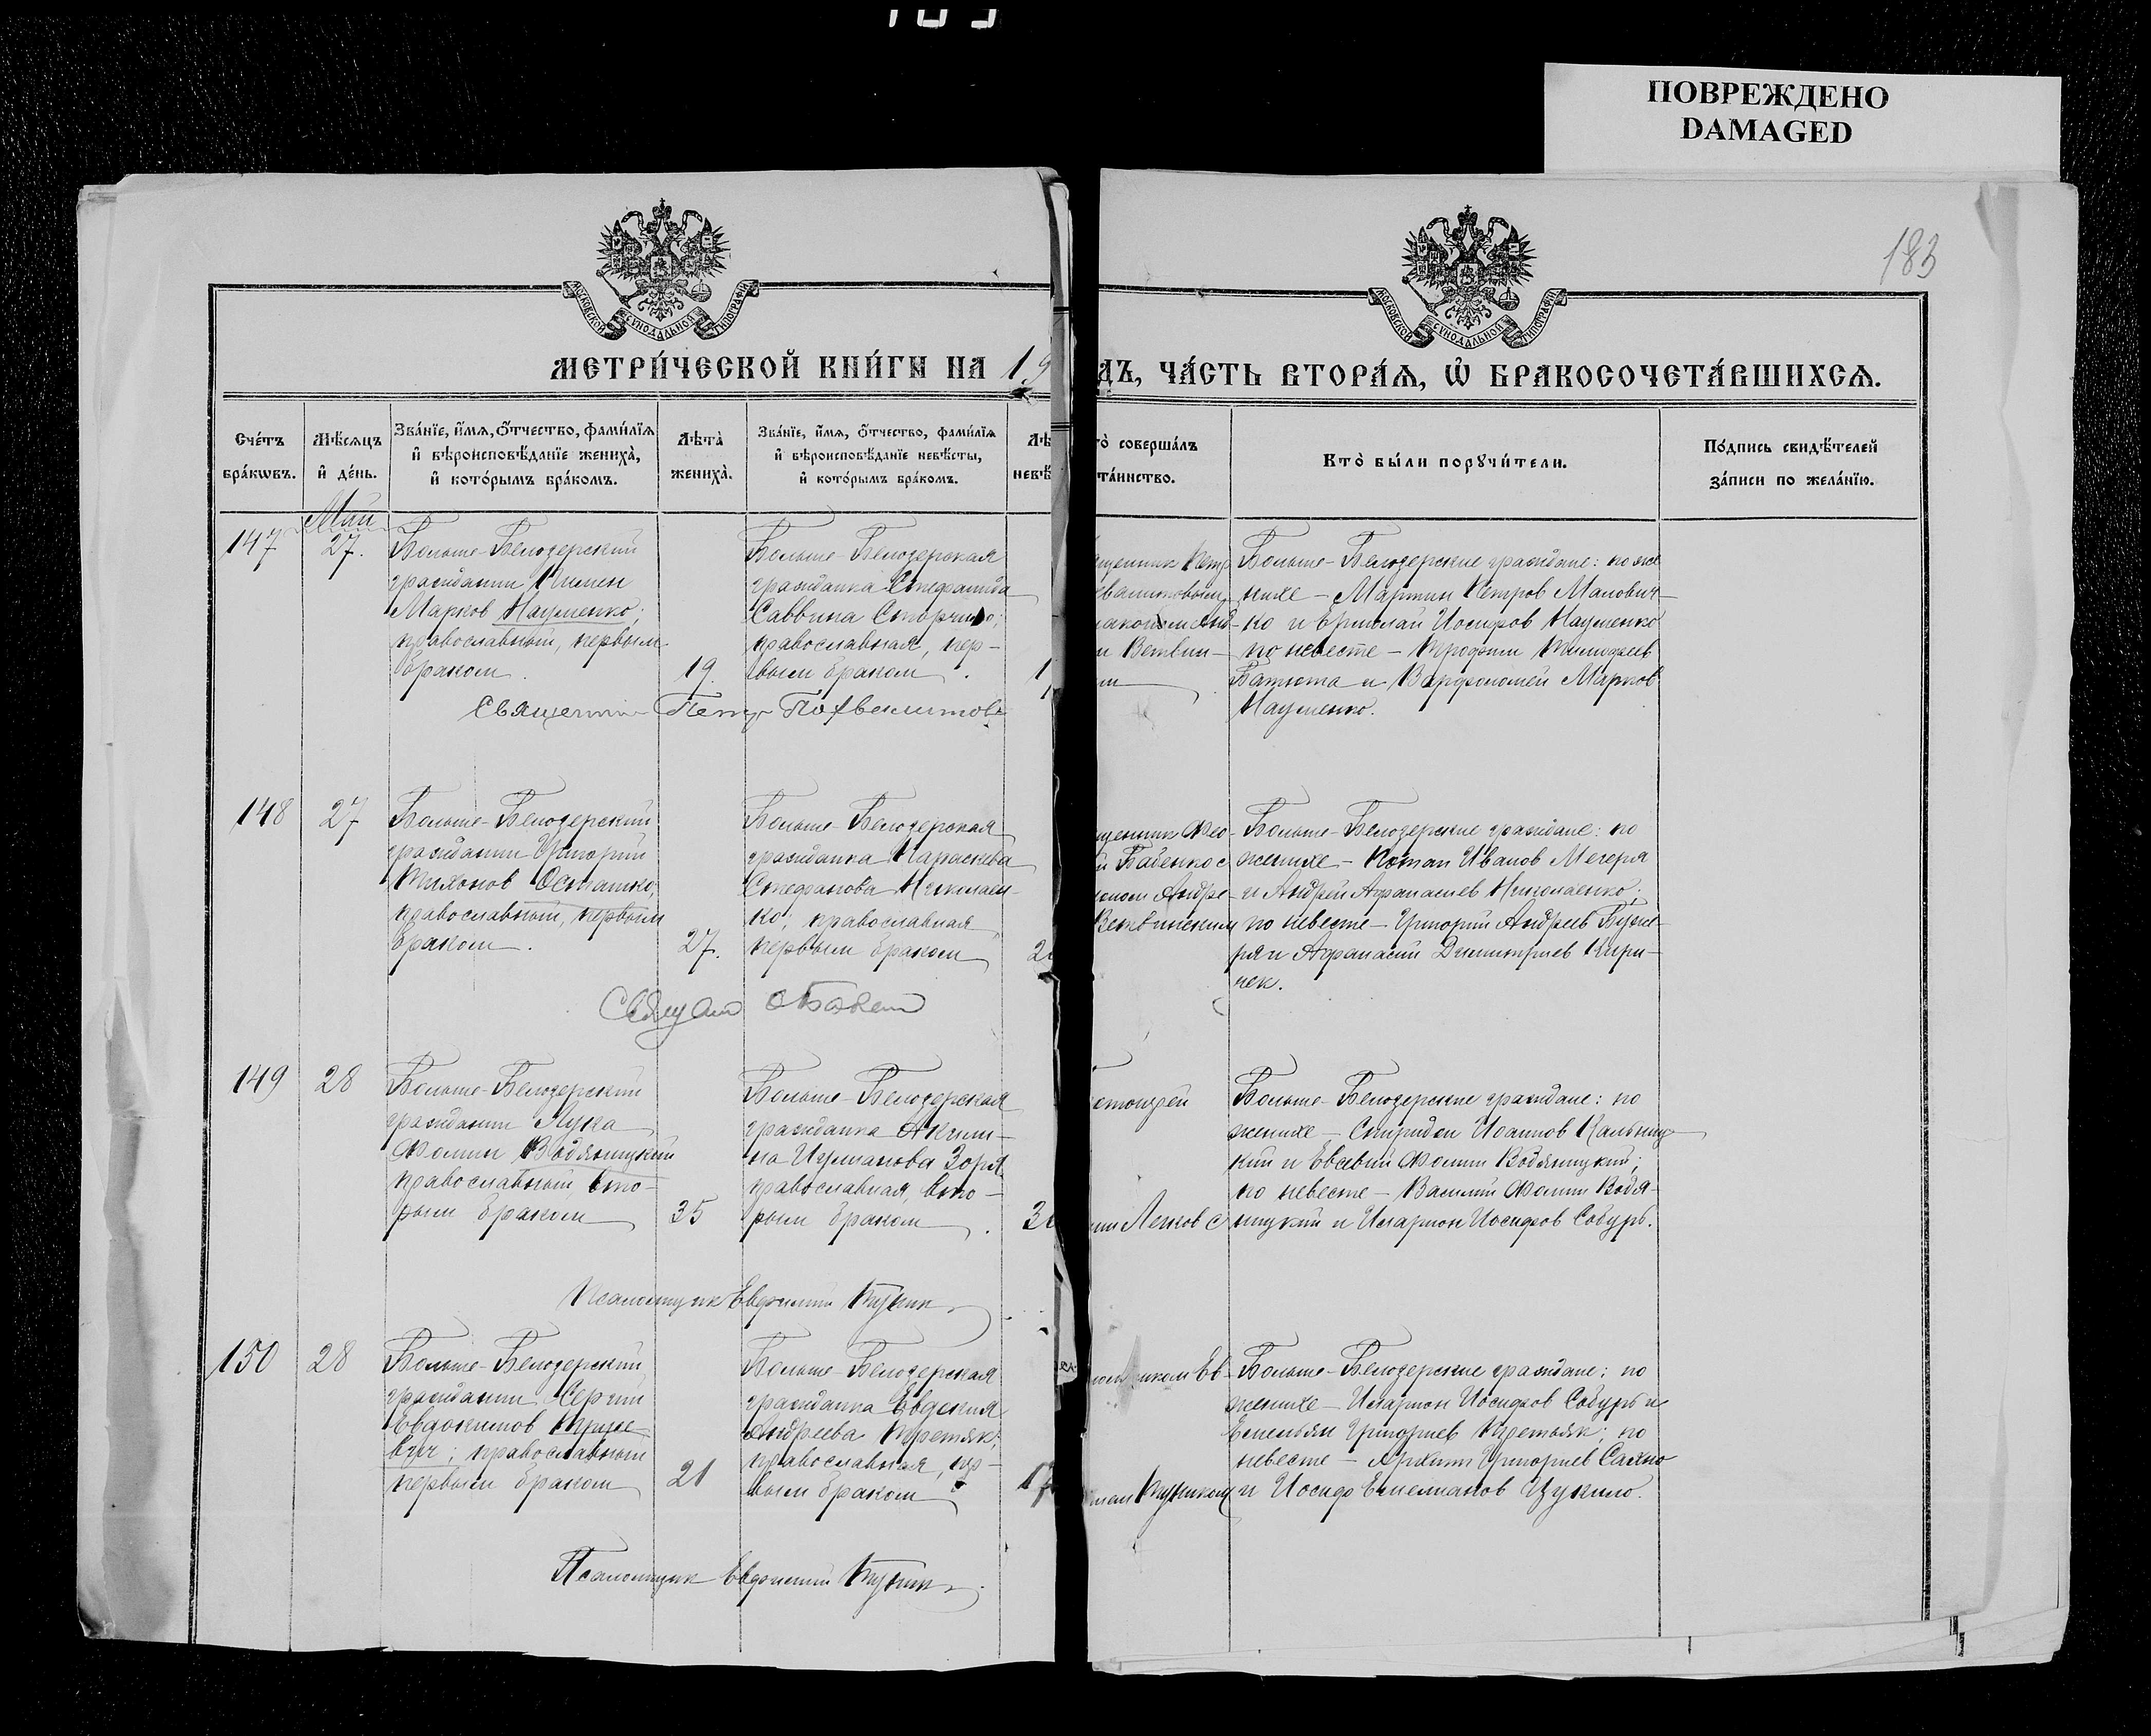 ПОВРЕЖДЕНО
DAMAGED
183
МОСКОВСКОЙ СѴНОДАЛЬНОЙ ТИПОГРАФІИ
МОСКОВСКОЙ СѴНОДАЛЬНОЙ ТИПОГРАФІИ
МЕТРИ́ЧЕСКОЙ КНИ́ГИ НА 19
ДЪ, ЧА́СТЬ ВТОРА́Ѧ, Ѡ҆ БРАКОСОЧЕТА́ВШИХСѦ.
Сче́тъ
бра́кѡвъ.
Мѣ́сѧцъ
и҆ де́нь.
Зва́нїе, и҆́мѧ, о҆́тчество, фами́лїѧ
и҆ вѣроисповѣ́данїе жениха̀,
и҆ кото́рымъ бра́комъ.
Лѣта̀
жениха̀.
Зва́нїе, и҆́мѧ, о҆́тчество, фами́лїѧ
и҆ вѣроисповѣ́данїе невѣ́сты,
и҆ кото́рымъ бра́комъ.
Лѣ
невѣ́
то̀ соверша́лъ
та́инство.
Кто̀ бы́ли порꙋчи́тели.
По́дпись свидѣ́телей
за́писи по жела́нїю.
Май
147
27.
Больше-Белозерский
гражданин Пимен
Марков Науменко;
православный, первым
браком.
19.
Больше-Белозерская
гражданка Стефанида
Саввина Сторчило;
православная, пер-
вым браком.
1
щенник Петр
и Ветвин-
Больше-Белозерские граждане: по же
нихе - Мартин Петров Манович-
ко и Ермолай Иосифов Науменко
по невесте - Трофим Тимофеев
Батюта и Варфоломей Марков
Науменко.
Священник Петр Похвалитов
148
27
Больше-Белозерский
гражданин Григорий
Тихонов Осташко,
православный, первым
браком.
27.
Больше-Белозерская
гражданка Параскева
Стефанова Николаен-
ко; православная,
первым браком
2
щенник Фео-
й Баденко с
Андре-
Ветвинским
Больше-Белозерские граждане: по
женихе - Потап Иванов Мечеря
и Андрей Афанасиев Николаенко;
по невесте - Григорий Андреев Буже-
ря и Афанасий Димитриев Кири-
чек.
149
28
Больше-Белозерский
гражданин Лука
Фомин Водяницкий
православный, вто-
рым браком
35
Больше-Белозерская
гражданка Акили-
на Игумнова Зоря
православная, вто-
рым браком.
3
Летков с
Больше-Белозерские граждане: по
женихе - Спиридон Иоаннов Кальниц-
кий и Евсевий Фомин Водяницкий;
по невесте - Василий Фомин Водя-
ницкий и Иларион Иосифов Собурь.
Псаломщик Евфимий Тупик
150
28
Больше-Белозерский
гражданин Сергий
Евдокимов
православный
первым браком
21
Больше-Белозерская
гражданка Евдокия
Андреева Третьяк;
православная, пер-
вым браком
17
иком Ев-
Тупиком
Больше-Белозерские граждане: по
женихе - Иларион Иосифов Собурь и
Емельян Григориев Третьяк; по
невесте - Архип Григориев Сахно
и Иосиф Емелианов Цукило.
Псаломщик Евфимий Тупик